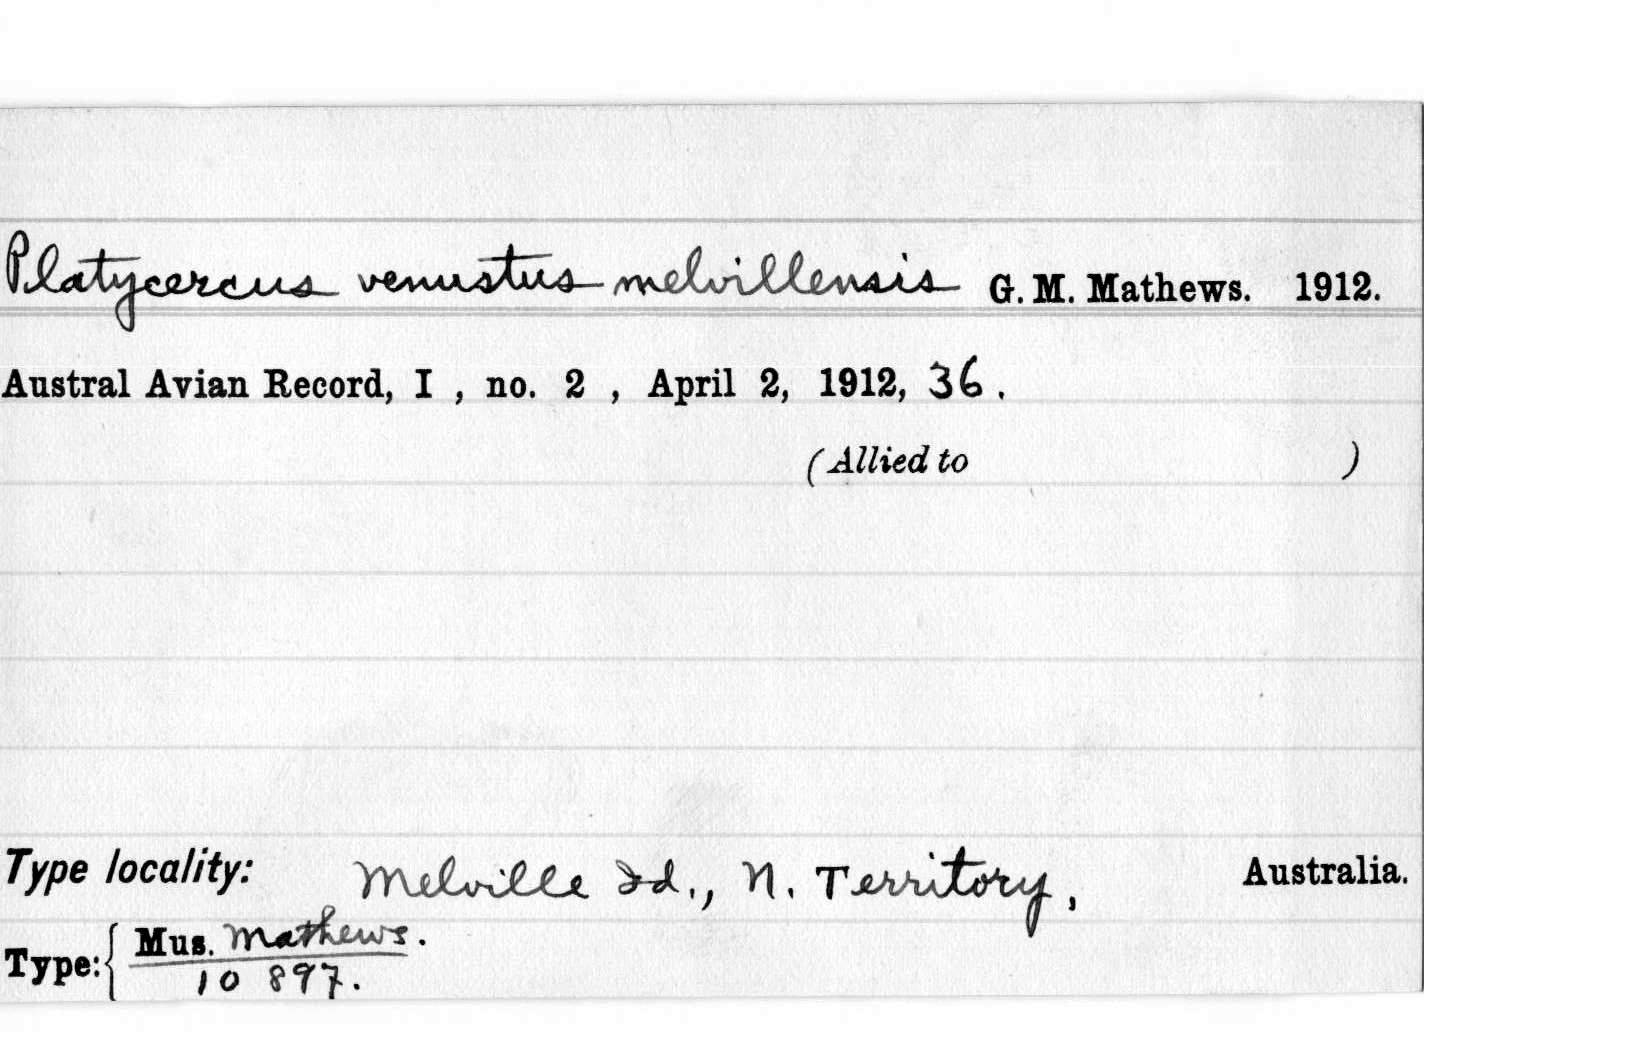 Platycercus venustus melvillensis G. M. Mathews. 1912.
Austral Avian Record, I , no. 2 , April 2, 1912, 36.
(Allied to )
Type locality: Melville Id., N. Territory, Australia.
Type: { Mus. Mathews.
10 897.